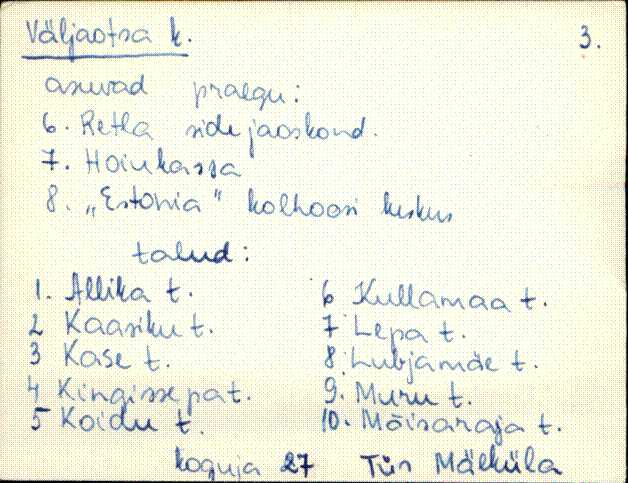 Väljaotsa k. 3.
asuvad praegu:
6. Retla sidejaoskond.
7. Hoiukassa
8. „Estonia" kolhoosi keskus
talud:
1. Allika t.
2 Kaasiku t.
3 Kase t.
4 Kingissepa t.
5 Koidu t.
6 Kullamaa t.
7 Lepa t.
8. Lubjamäe t.
9. Muru t.
10. Mõisaraja t.
koguja 27 Tiis Mäeküla